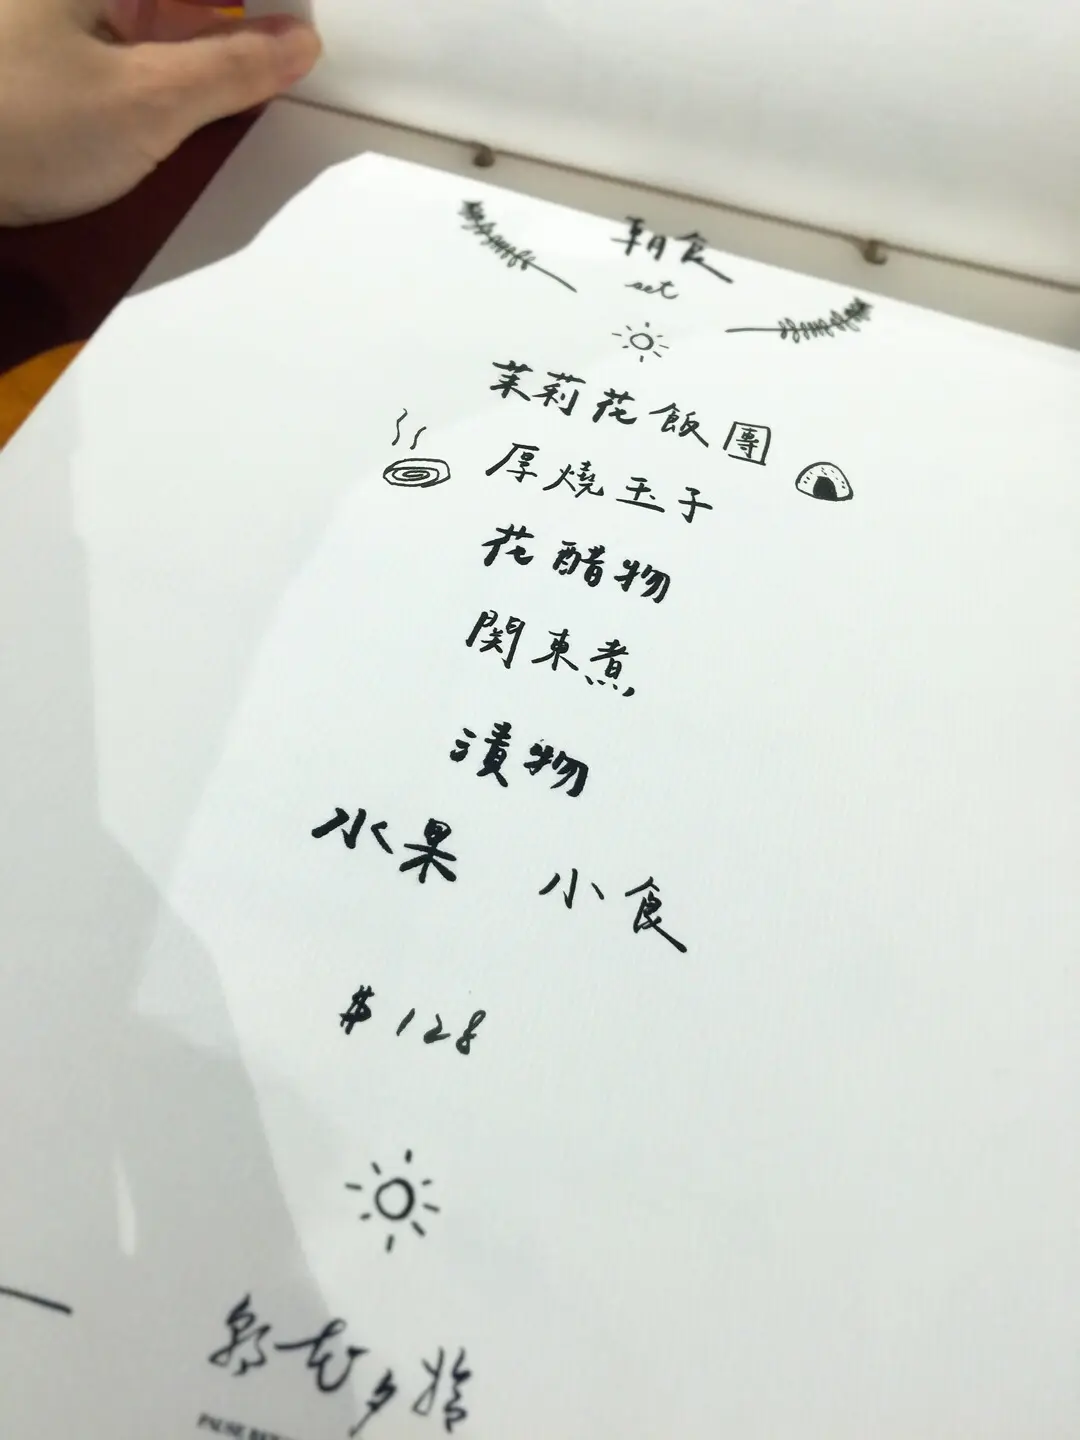 朝食
set
茉莉花飯團
厚燒玉子
花醋物
関東煮
漬物
水果 小食
$128
朝花夕拾